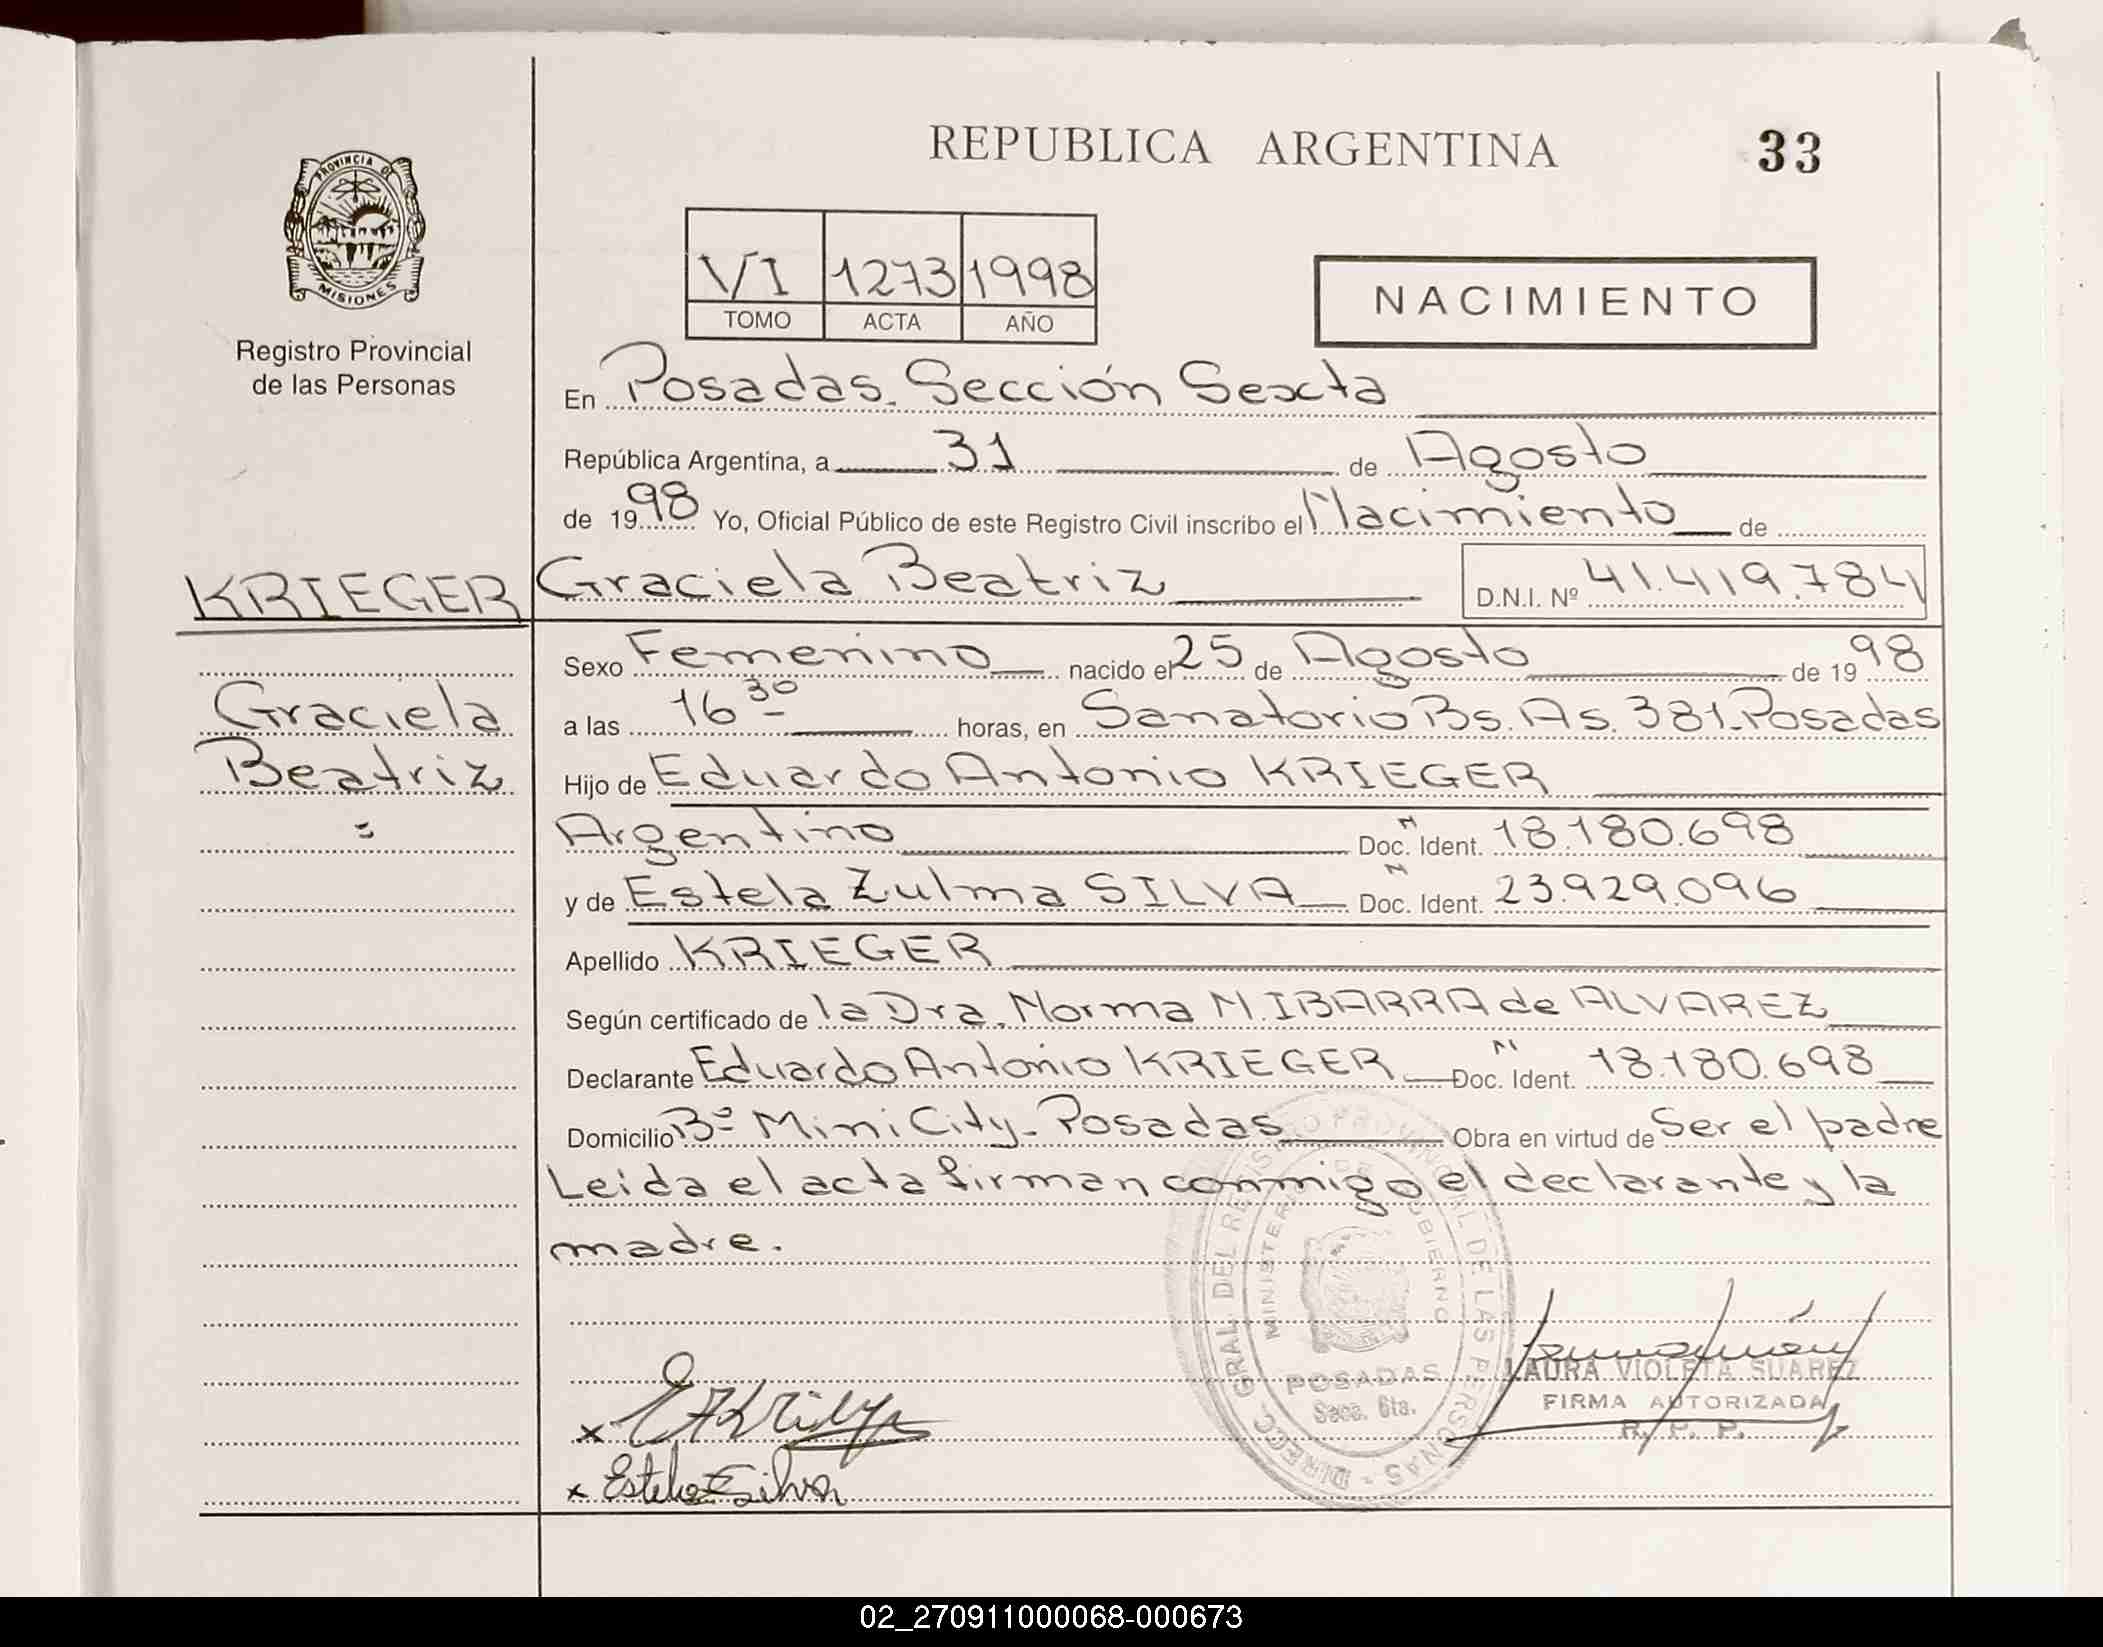 REPUBLICA ARGENTINA 33
PROVINCIA DE
MISIONES
Registro Provincial
de las Personas
VI 1273 1998
TOMO ACTA AÑO
NACIMIENTO
En Posadas. Sección Sexta
República Argentina, a 31 de Agosto
de 1998 Yo, Oficial Público de este Registro Civil inscribo el Nacimiento de
KRIEGER Graciela Beatriz D.N.I. Nº 41.419.784
Sexo Femenino nacido el 25 de Agosto de 1998
Graciela
a las 16 30 horas, en Sanatorio Bs. As. 381. Posadas
Beatriz
Hijo de Eduardo Antonio KRIEGER
Argentino Doc. Ident. M 18.180.698
y de Estela Zulma SILVA Doc. Ident. 23.929.096
Apellido KRIEGER
Según certificado de la Dra. Norma N. IBARRA de ALVAREZ
Declarante Eduardo Antonio KRIEGER Doc. Ident. 18.180.698
Domicilio Bº Mini City - Posadas Obra en virtud de Ser el padre
Leida el acta firman conmigo el declarante y la
madre.
DIRECC. GRAL. DEL REGISTRO PROVINCIAL DE LAS PERSONAS
MINISTERIO DE GOBIERNO
POSADAS
Secc. 6ta.
LAURA VIOLETA SUAREZ
FIRMA AUTORIZADA
R. P. P.
x Estela Z Silva
02_270911000068-000673